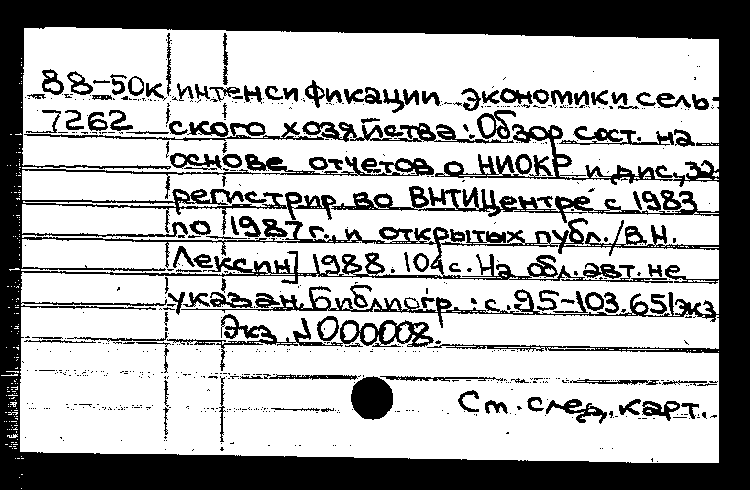 88-50к интенсификации экономики сель-
7262 ского хозяйства: Обзор сост. на
основе отчетов о НИОКР и дис., за-
регистрир. во ВНТИЦентре с 1983
по 1987 г., и открытых публ./В.Н.
Лексин] 1988. 104 с. На обл. авт. не
указан. Библиогр.: с. 95-103. 651 экз
Экз. N 000008.
См. след. карт.